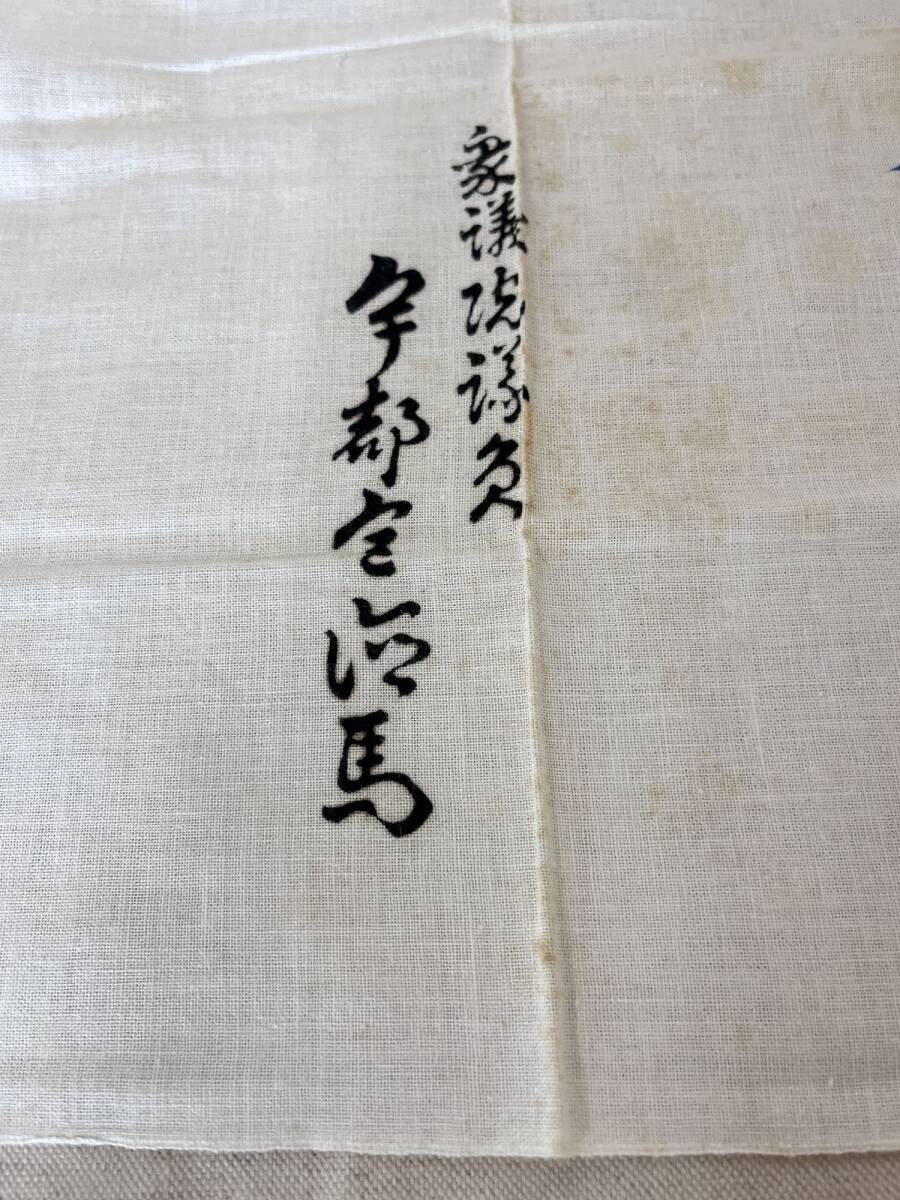 衆議院議員
宇都宮徳馬